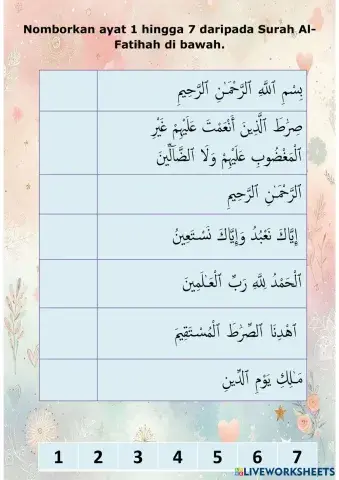 Nomborkan ayat 1 hingga 7 daripada Surah Al-
Fatihah di bawah.
بِسْمِ ٱللَّهِ ٱلرَّحْمَـٰنِ ٱلرَّحِيمِ
صِرَٰطَ ٱلَّذِينَ أَنْعَمْتَ عَلَيْهِمْ غَيْرِ
ٱلْمَغْضُوبِ عَلَيْهِمْ وَلَا ٱلضَّآلِّينَ
ٱلرَّحْمَـٰنِ ٱلرَّحِيمِ
إِيَّاكَ نَعْبُدُ وَإِيَّاكَ نَسْتَعِينُ
ٱلْحَمْدُ لِلَّهِ رَبِّ ٱلْعَـٰلَمِينَ
ٱهْدِنَا ٱلصِّرَٰطَ ٱلْمُسْتَقِيمَ
مَـٰلِكِ يَوْمِ ٱلدِّينِ
1 2 3 4 5 6 7
LIVEWORKSHEETS